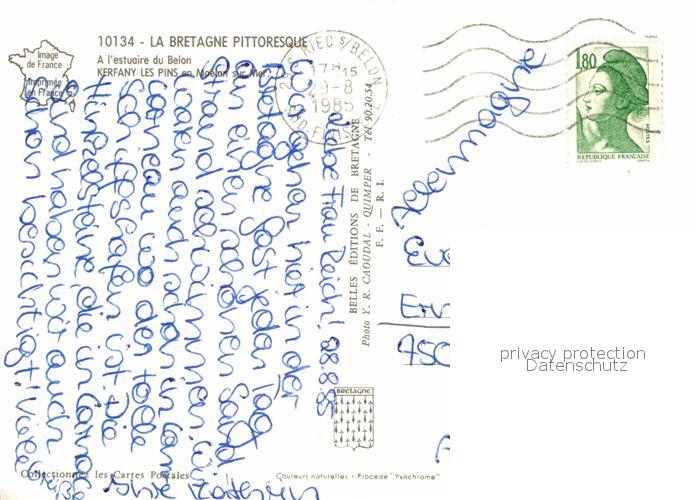 10134 - LA BRETAGNE PITTORESQUE
A l'estuaire du Belon
KERFANY LES PINS en Moëlan sur Mer
Image
de France
Imprimée
en France
RIEC S/BELON
17H15
29-8
1985
FINISTERE
1,80
POSTES
REPUBLIQUE FRANÇAISE
BELLES ÉDITIONS DE BRETAGNE
Photo Y. R. CAOUDAL - QUIMPER - Tél. 90.20.54
F. F. - R. I.
28.8.85
Liebe Frau Reich!
Wir gehen hier in der
Bretagne fast jeden Tag
an einen anderen Sand
Strand schwimmen. Wir
waren auch schon in Conc
carneau wo der tolle
Schiffshafen ist. Die
Hinkelsteine, die in Carnac
sind haben wir auch
schon besichtigt! Viele
Grüße Ihre Kathrin
Allemagne
450
BRETAGNE
Collectionnez les Cartes Postales
Couleurs naturelles - Procédé "Yvochrome"
privacy protection
Datenschutz